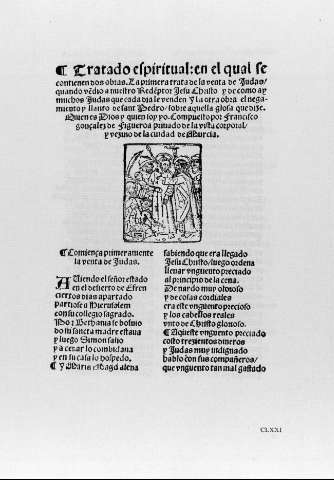 ¶ Tratado espiritual: en el qual se
contienen dos obras. La primera trata de la venta de Judas/
quando vēdio a nuestro Redēptor Jesu Christo y de como ay
muchos Judas que cada dia le venden Y la otra obra el nega-
miento y llanto de sant Pedro/ sobre aquella glosa que dize.
Quien es Dios y quien soy yo. Compuesto por Francisco
gonçalez de Figueroa priuado de la vista corporal/
y vezino de la ciudad de Murcia.
¶ Comiença primeramente
la venta de Judas.
Auiendo el señor estado
en el desierto de Efren
ciertos dias apartado
partiose a Hierusalem
con su collegio sagrado.
Por Bethania se boluio
do su sancta madre estaua
y luego Simon salio
y a cenar lo combidaua
y en su casa lo hospedo.
¶ Y Maria Magdalena
sabiendo que era llegado
Jesu Christo/ luego ordena
lleuar vnguento preciado
al principio de la cena.
De nardo muy oloroso
y de cosas cordiales
era este vnguento precioso
y los cabellos reales
vnto de Christo glorioso.
¶ Aqueste vnguento preciado
costo trezientos dineros
y Judas muy indignado
hablo con sus compañeros/
que vnguento tan mal gastado
CLXXI